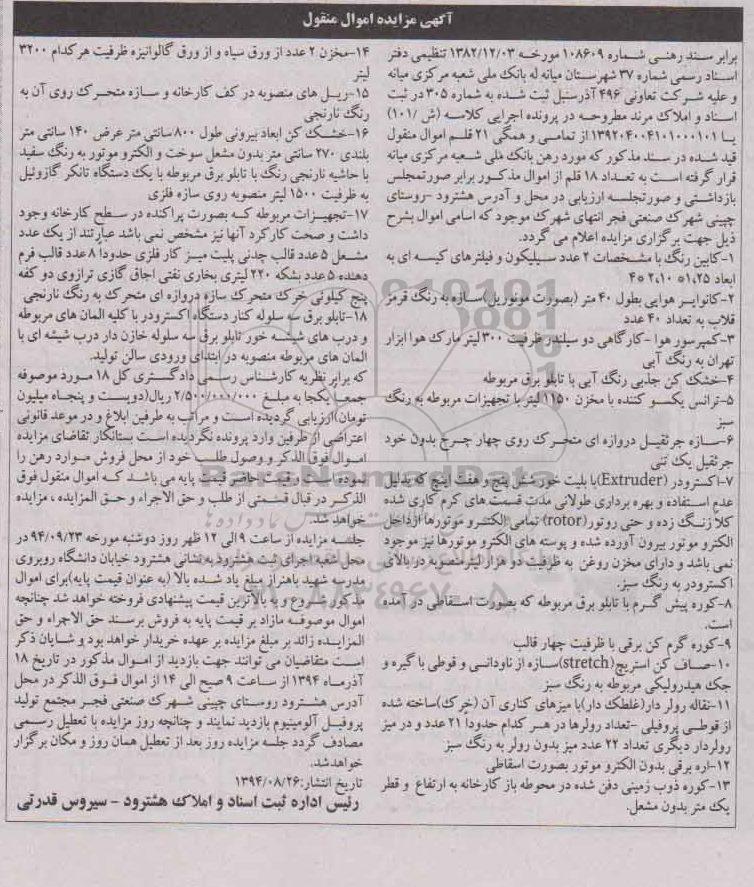 آگهی مزایده اموال منقول
برابر سند رهنی شماره ۱۰۸۶۰۹ مورخه ۱۳۸۲/۱۲/۰۳ تنظیمی دفتر
اسناد رسمی شماره ۳۷ شهرستان میانه له بانک ملی شعبه مرکزی میانه
و علیه شرکت تعاونی ۴۹۶ آذرسنبل ثبت شده به شماره ۳۰۵ در ثبت
اسناد و املاک مرند مطروحه در پرونده اجرایی کلاسه (ش /۱۰۱)
یا ۱۳۹۲۰۴۰۰۴۱۰۱۰۰۰۱۰۱ از تمامی و همگی ۲۱ قلم اموال منقول
قید شده در سند مذکور که مورد رهن بانک ملی شعبه مرکزی میانه
قرار گرفته است به تعداد ۱۸ قلم از اموال مذکور برابر صورتمجلس
بازداشتی و صورتجلسه ارزیابی در محل و آدرس هشترود -روستای
چپینی شهرک صنعتی فجر انتهای شهرک موجود که اسامی اموال بشرح
ذیل جهت برگزاری مزایده اعلام می گردد.
۱-کابین رنگ با مشخصات ۲ عدد سیلیکون و فیلترهای کیسه ای به
ابعاد ۱،۲۵* ۲،۱۰ *۴
۲-کانوایر هوایی بطول ۴۰ متر (بصورت مونوریل)سازه به رنگ قرمز
قلاب به تعداد ۴۰ عدد
۳-کمپرسور هوا -کارگاهی دو سیلندر ظرفیت ۳۰۰ لیتر مارک هوا ابزار
تهران به رنگ آبی
۴-خشک کن جذبی رنگ آبی با تابلو برق مربوطه
۵-ترانس یکسو کننده با مخزن ۱۱۵۰ لیتر با تجهیزات مربوطه به رنگ
سبز
۶-سازه جرثقیل دروازه ای متحرک روی چهار چرخ بدون خود
جرثقیل یک تنی
۷-اکسترودر (Extruder)با بلیت خور شش پنج و هفت اینچ که بدلیل
عدم استفاده و بهره برداری طولانی مدت قسمت های کرم کاری شده
کلاً زنگ زده و حتی روتور(rotor) تمامی الکترو موتورها از داخل
الکترو موتور بیرون آورده شده و پوسته های الکترو موتورها نیز موجود
نمی باشد و دارای مخزن روغن به ظرفیت دو هزار لیتر منصوبه در بالای
اکسترودر به رنگ سبز.
۸-کوره پیش گرم با تابلو برق مربوطه که بصورت اسقاطی در آمده
است.
۹-کوره گرم کن برقی با ظرفیت چهار قالب
۱۰-صاف کن استریچ(stretch)سازه از ناودانی و قوطی با گیره و
جک هیدرولیکی مربوطه به رنگ سبز
۱۱-نقاله رولر دار(غلطک دار)با میزهای کناری آن (خرک)ساخته شده
از قوطی پروفیلی -تعداد رولرها در هر کدام حدودا ۲۱ عدد و در میز
رولردار دیگری تعداد ۲۲ عدد میز بدون رولر به رنگ سبز
۱۲-اره برقی بدون الکترو موتور بصورت اسقاطی
۱۳-کوره ذوب زمینی دفن شده در محوطه باز کارخانه به ارتفاع و قطر
یک متر بدون مشعل.
۱۴-مخزن ۲ عدد از ورق سیاه و از ورق گالوانیزه ظرفیت هر کدام ۳۲۰۰
لیتر
۱۵-ریل های منصوبه در کف کارخانه و سازه متحرک روی آن به
رنگ نارنجی
۱۶-خشک کن ابعاد بیرونی طول ۸۰۰ سانتی متر عرض ۱۴۰ سانتی متر
بلندی ۲۷۰ سانتی متر بدون مشعل سوخت و الکترو موتور به رنگ سفید
با حاشیه نارنجی رنگ با تابلو برق مربوطه با یک دستگاه تانکر گازوئیل
به ظرفیت ۱۵۰۰ لیتر منصوبه روی سازه فلزی
۱۷-تجهیزات مربوطه که بصورت پراکنده در سطح کارخانه وجود
داشت و صحت کارکرد آنها نیز مشخص نمی باشد عبارتند از یک عدد
مشعل ۵عدد قالب چدنی پلیت میز کار فلزی حدوداً ۸ عدد قالب فرم
دهنده ۵ عدد بشکه ۲۲۰ لیتری بخاری نفتی اجاق گازی ترازوی دو کفه
پنج کیلوئی خرک متحرک سازه دروازه ای متحرک به رنگ نارنجی
۱۸-تابلو برق سه سلوله کنار دستگاه اکسترودر با کلیه المان های مربوطه
و درب های شیشه خور تابلو برق سه سلوله خازن دار درب شیشه ای با
المان های مربوطه منصوبه در ابتدای ورودی سالن تولید.
که برابر نظریه کارشناس رسمی دادگستری کل ۱۸ مورد موصوفه
جمعاً یکجا به مبلغ ۲/۵۰۰/۰۰۰/۰۰۰ ریال(دویست و پنجاه میلیون
تومان)ارزیابی گردیده است و مراتب به طرفین ابلاغ و در موعد قانونی
اعتراضی از طرفین وارد پرونده نگردیده است بستانکار تقاضای مزایده
اموال فوق الذکر و وصول طلب خود از محل فروش موارد رهن را
نموده است و قیمت حاضر قیمت پایه می باشد که اموال منقول فوق
الذکر در قبال قسمتی از طلب و حق الاجراء و حق المزایده ، مزایده
خواهد شد.
جلسه مزایده از ساعت ۹ الی ۱۲ ظهر روز دوشنبه مورخه ۹۴/۰۹/۲۳ در
محل شعبه اجرای ثبت هشترود به نشانی هشترود خیابان دانشگاه روبروی
مدرسه شهید باهنر از مبلغ یاد شده بالا (به عنوان قیمت پایه)برای اموال
مذکور شروع و به بالاترین قیمت پیشنهادی فروخته خواهد شد چنانچه
اموال موصوفه مازاد بر قیمت پایه به فروش برسند حق الاجراء و حق
المزایده زائد بر مبلغ مزایده بر عهده خریدار خواهد بود و شایان ذکر
است متقاضیان می توانند جهت بازدید از اموال مذکور در تاریخ ۱۸
آذرماه ۱۳۹۴ از ساعت ۹ صبح الی ۱۴ از اموال فوق الذکر در محل
آدرس هشترود روستای چپینی شهرک صنعتی فجر مجتمع تولید
پروفیل آلومینیوم بازدید نمایند و چنانچه روز مزایده با تعطیل رسمی
مصادف گردد جلسه مزایده روز بعد از تعطیل همان روز و مکان برگزار
خواهدشد.
تاریخ انتشار:۱۳۹۴/۰۸/۲۶
رئیس اداره ثبت اسناد و املاک هشترود - سیروس قدرتی